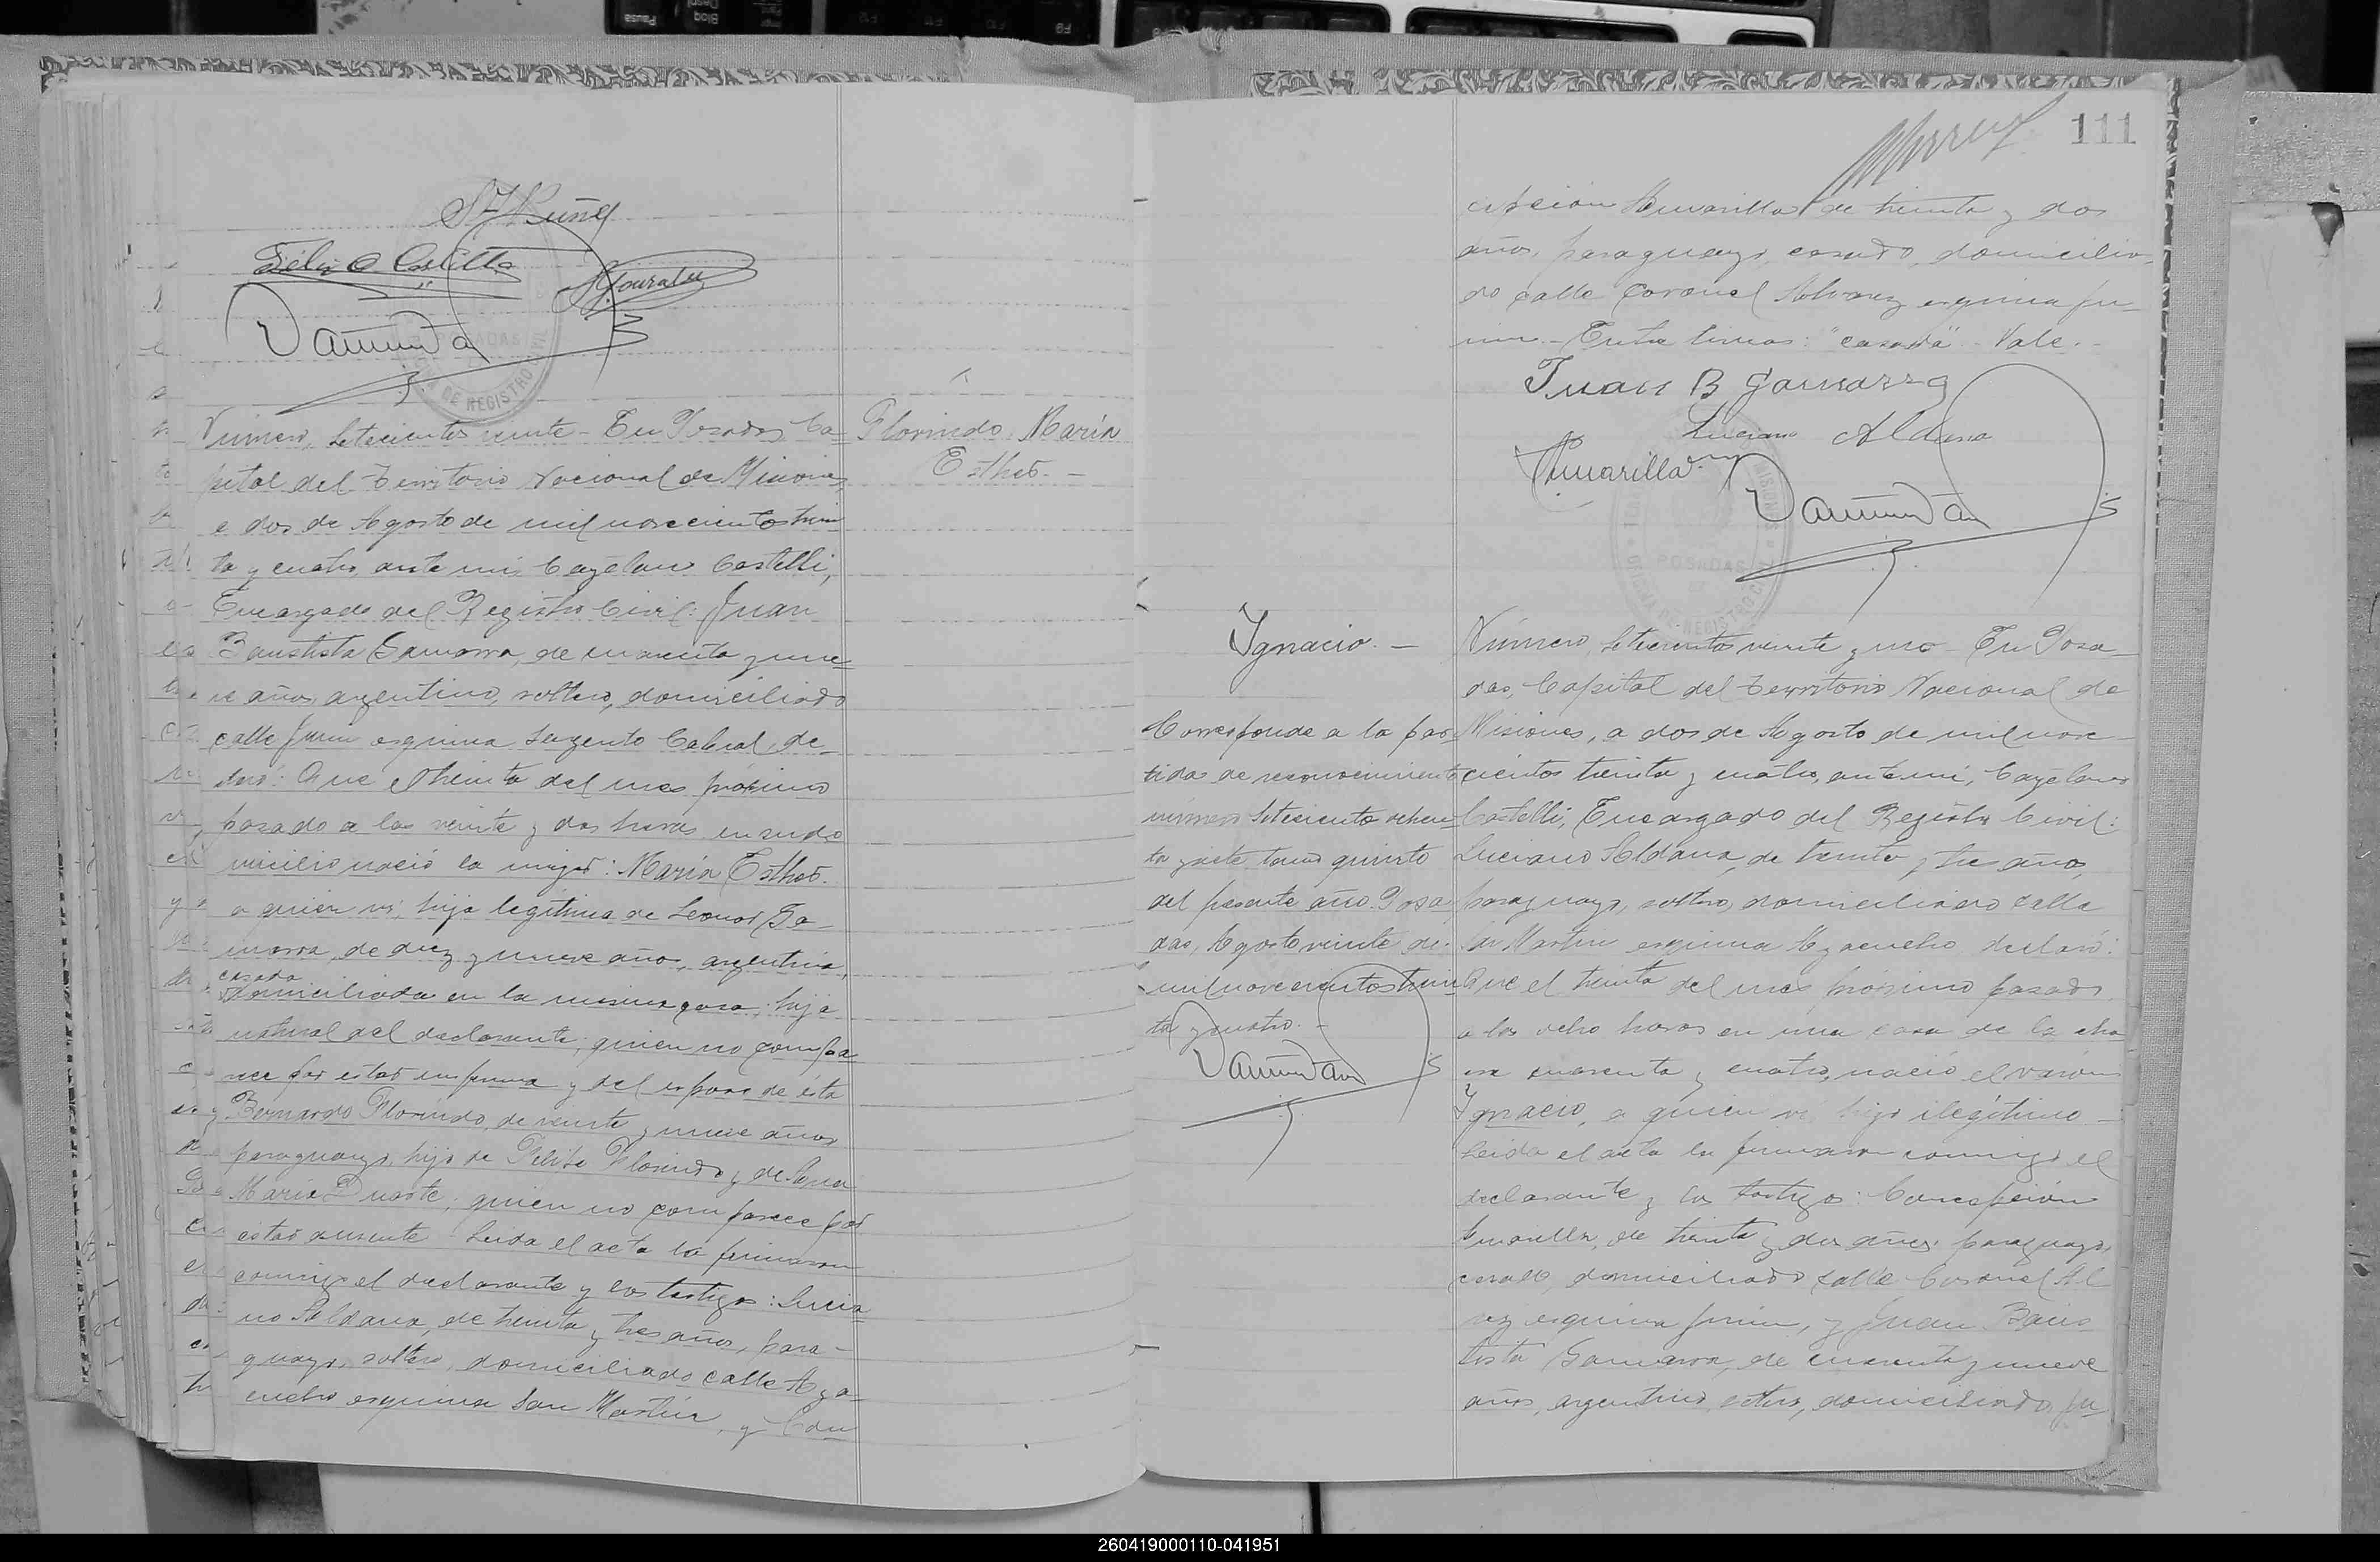 Félix O Castillo
Número, setecientos veinte - En Posadas, Ca-
pital del Territorio Nacional de Misiones,
a dos de Agosto de mil novecientos trein
ta y cuatro, ante mí, Cayetano Castelli,
Encargado del Registro Civil: Juan
Bautista Gamarra, de cuarenta y nue-
ve años, argentino, soltero, domiciliado
calle Junin esquina Sargento Cabral, de-
claró: Que el treinta del mes próximo
pasado a las veinte y dos horas, en su do
micilio nació la mujer: María Esther.
a quien vi, hija legítima de Leonor Ga-
marra, de diez y nueve años, argentina,
casada
domiciliada en la misma casa, hija
natural del declarante, quien no compa
rece por estar enferma y del esposo de ésta
Bernardo Florindo, de veinte y nueve años
paraguayo, hijo de Felipe Florindo y de
María Duarte, quien no comparece por
estar ausente - Leida el acta la firmaron
conmigo el declarante y los testigos: Lucia
no Aldana, de treinta y tres años, para-
guayo, soltero, domiciliado calle Aya-
cucho esquina San Martín, y Con
Florindo María
Esther. -
111
cepción Amarilla, de treinta y dos
años, paraguayo, casado, domicilia-
do calle Coronel Alvarez esquina Ju-
nin. - Entre lineas: "casada" - Vale. -
Juan B Gamarra
Luciano Aldana
Amarilla
POSADAS
Ignacio. -
Corresponde a la par-
tida de reconocimiento
número setecientos ochen-
ta y siete tomo quinto
del presente año. Posa-
das, Agosto veinte de
mil novecientos trein
ta y cuatro. -
Número, setecientos veinte y uno - En Posa-
das, Capital del Territorio Nacional de
Misiones, a dos de Agosto de mil nove-
cientos treinta y cuatro, ante mí, Cayetano
Castelli, Encargado del Registro Civil:
Luciano Aldana, de treinta y tres años,
paraguayo, soltero, domiciliado calle
San Martin esquina Ayacucho declaró:
Que el treinta del mes próximo pasado
a las ocho horas en una casa de la cha
cra cuarenta y cuatro, nació el varón
Ignacio, a quien vi, hijo ilegítimo -
Leida el acta la firmaron conmigo el
declarante y los testigos: Concepción
Amarilla, de treinta y dos años, paraguayo,
casado, domiciliado calle Coronel Al
rez esquina Junin, y Juan Bau
tista Gamarra, de cuarenta y nueve
años, argentino, soltero, domiciliado, Ju
260419000110-041951